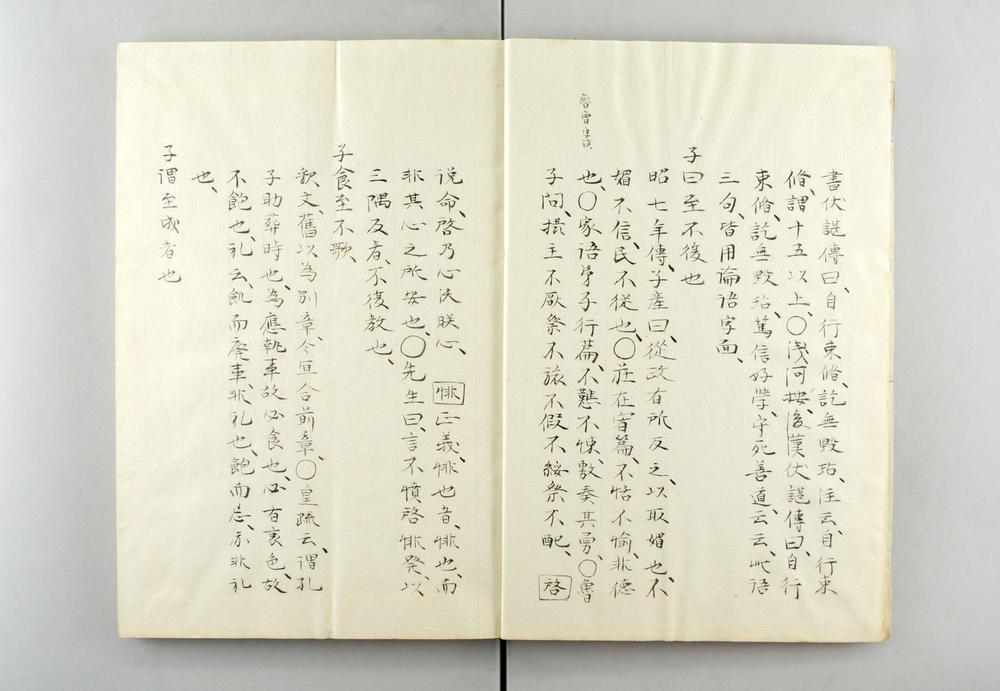 書伏諶傳曰、自行束脩、訖無毀玷、注云、自行束
脩、謂十五以上、〇浅河按、後漢伏諶傳曰、自行
束脩、訖無毀玷、篤信好學、守死善道、云云、此語
三句、皆用論语字面、
子曰至不復也
昭七年傳、子產曰、從政有所反之、以取媚也、不
媚不信、民不從也、〇
也、〇家语弟子行篇、不戁不悚、敷奏其勇、〇魯
子问、攝主不厭祭不旅不假不綏祭不配、啓
说命、啓乃心沃朕心、悱正義、悱也者、悱也、而
非其心之所安也、〇先生曰、言不憤啓悱發、以
三隅反者、不復教也、
子食至不歌
釈文、舊以為別章、今宜合前章、〇皇疏云、謂孔
子助葬時也、為應執事故必食也、必有哀色、故
不飽也、礼云、飢而廃事、非礼也、飽而忘、亦非礼
也、
子謂至成者也